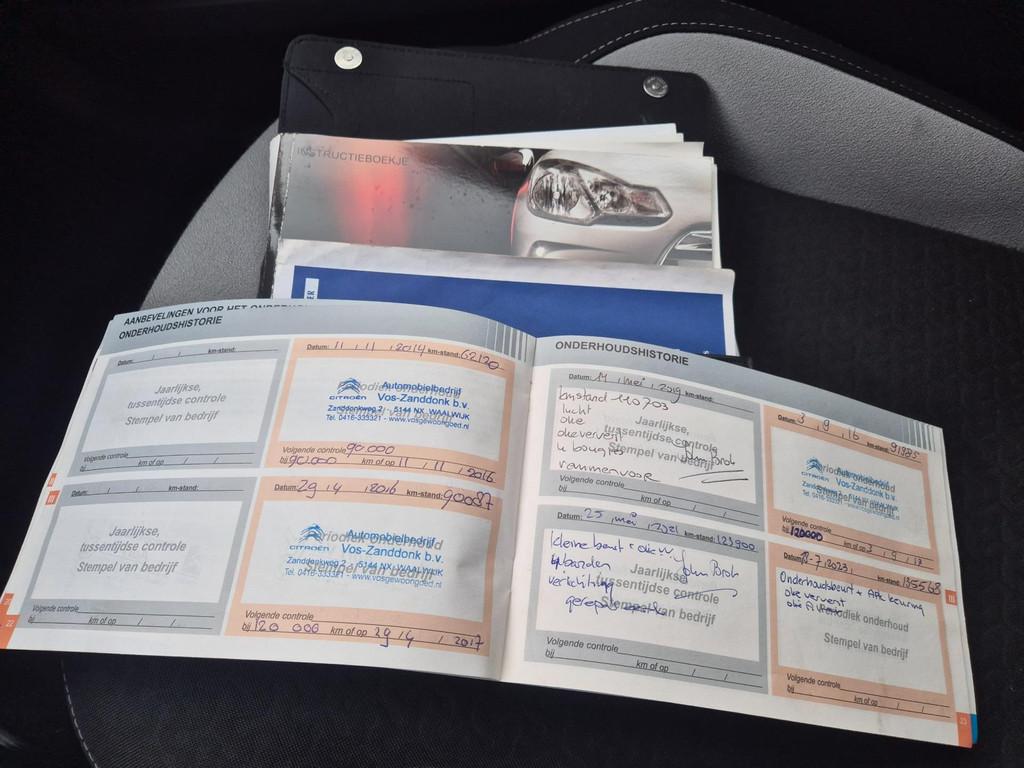 INSTRUCTIEBOEKJE
AANBEVELINGEN VOOR HET
ONDERHOUDSHISTORIE
Datum: / / km-stand:
Jaarlijkse,
tussentijdse controle
Stempel van bedrijf
Volgende controle
bij km of op / /
Datum: 11 / 11 / 2014 km-stand: 62120
CITROËN
Automobielbedrijf
Vos-Zanddonk b.v.
Zanddonkweg 2 / 5144 NX WAALWIJK
Tel. 0416-333321 - www.vosgewoongoed.nl
Stempel van bedrijf
Volgende controle 90.000
bij 90.000 km of op 11 / 11 / 2016
Datum: / / km-stand:
Jaarlijkse,
tussentijdse controle
Stempel van bedrijf
Volgende controle
bij km of op / /
Datum: 29 / 4 / 2016 km-stand: 90087
CITROËN
Automobielbedrijf
Vos-Zanddonk b.v.
Zanddonkweg 2 / 5144 NX WAALWIJK
Tel. 0416-333321 - www.vosgewoongoed.nl
Stempel van bedrijf
Volgende controle
bij 120 000 km of op 29 / 4 / 2017
22
ONDERHOUDSHISTORIE
Datum: 14 / mei / 2019 km-stand:
kmstand 110703
lucht
olie
olie ververst
4 bougies
remmen voor
Jaarlijkse,
tussentijdse controle
Stempel van bedrijf
Volgende controle
bij km of op / /
Datum: 3 / 9 / 16 km-stand: 91985
Periodiek onderhoud
Automobielbedrijf
Vos-Zanddonk b.v.
Stempel van bedrijf
Volgende controle
bij 120000 km of op 3 / 9 / 17
Datum: 25 / mei / 2021 km-stand: 123900
kleine beurt + olie
John
verlichting
Jaarlijkse,
tussentijdse controle
Stempel van bedrijf
Volgende controle
bij km of op / /
Datum: 18-7-2023 km-stand: 135568
Onderhoudsbeurt + APK keuring
olie ververst
Periodiek onderhoud
Stempel van bedrijf
Volgende controle
bij km of op / /
23